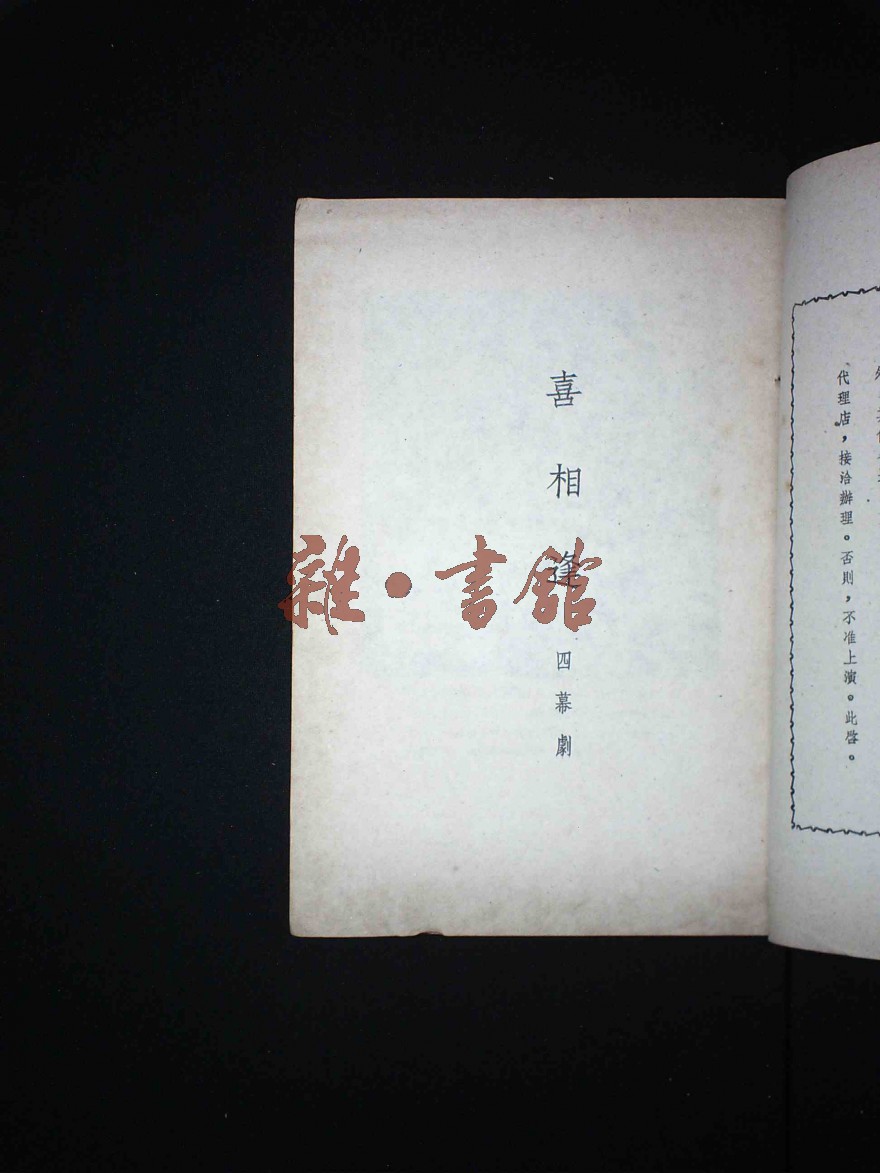 代理店，接洽辦理。否則，不准上演。此啓。
喜相逢
四幕劇
雜•書館